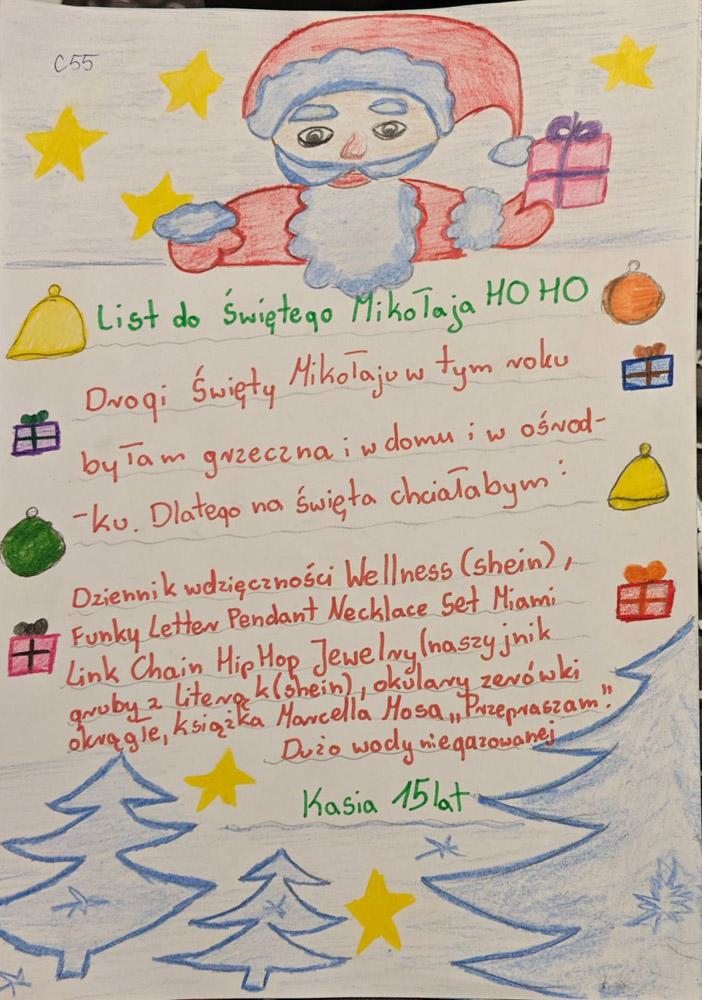 C55
List do Świętego Mikołaja HO HO
Drogi Święty Mikołaju w tym roku
byłam grzeczna i w domu i w ośrod-
-ku. Dlatego na święta chciałabym:
Dziennik wdzięczności Wellness (shein),
Funky Letter Pendant Necklace Set Miami
Link Chain Hip Hop Jewelry (naszyjnik
gruby z literą k (shein), okulary zerówki
okrągłe, książka Marcella Mosa „Przepraszam".
Dużo wody niegazowanej
Kasia 15 lat